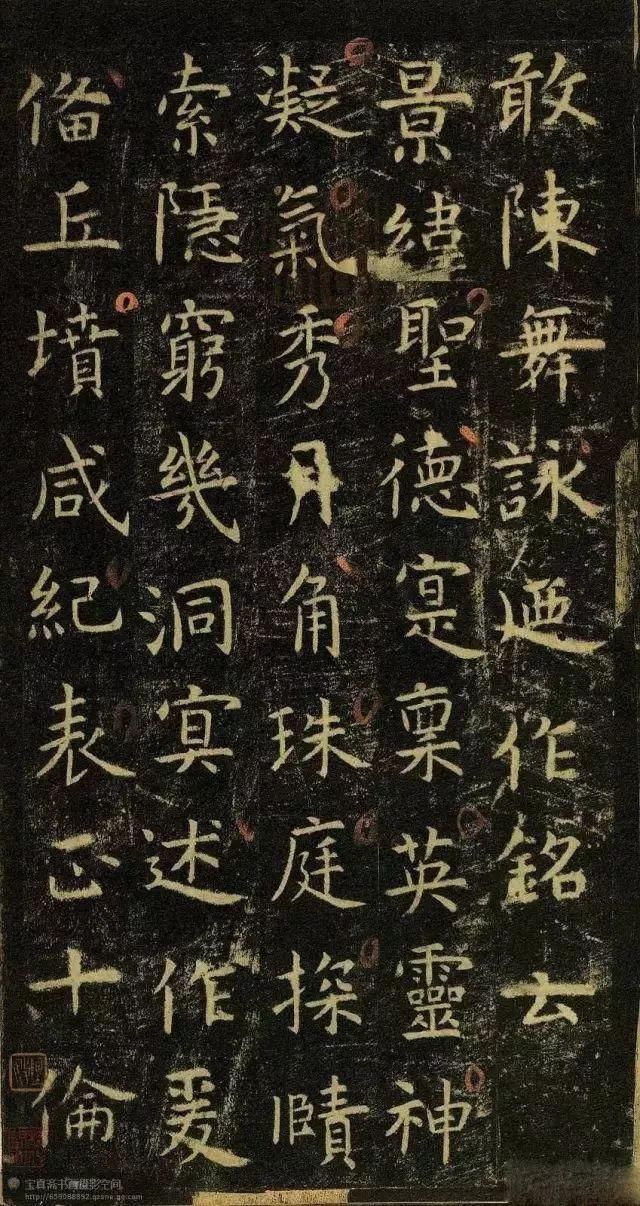 敢陳舞詠迺作銘云
景緯聖德寔稟英靈神
凝氣秀月角珠庭探賾
索隱窮幾洞冥述作爰
俻丘墳咸紀表正十倫
宝真斋书画摄影空间
http://659088892.qzone.qq.com